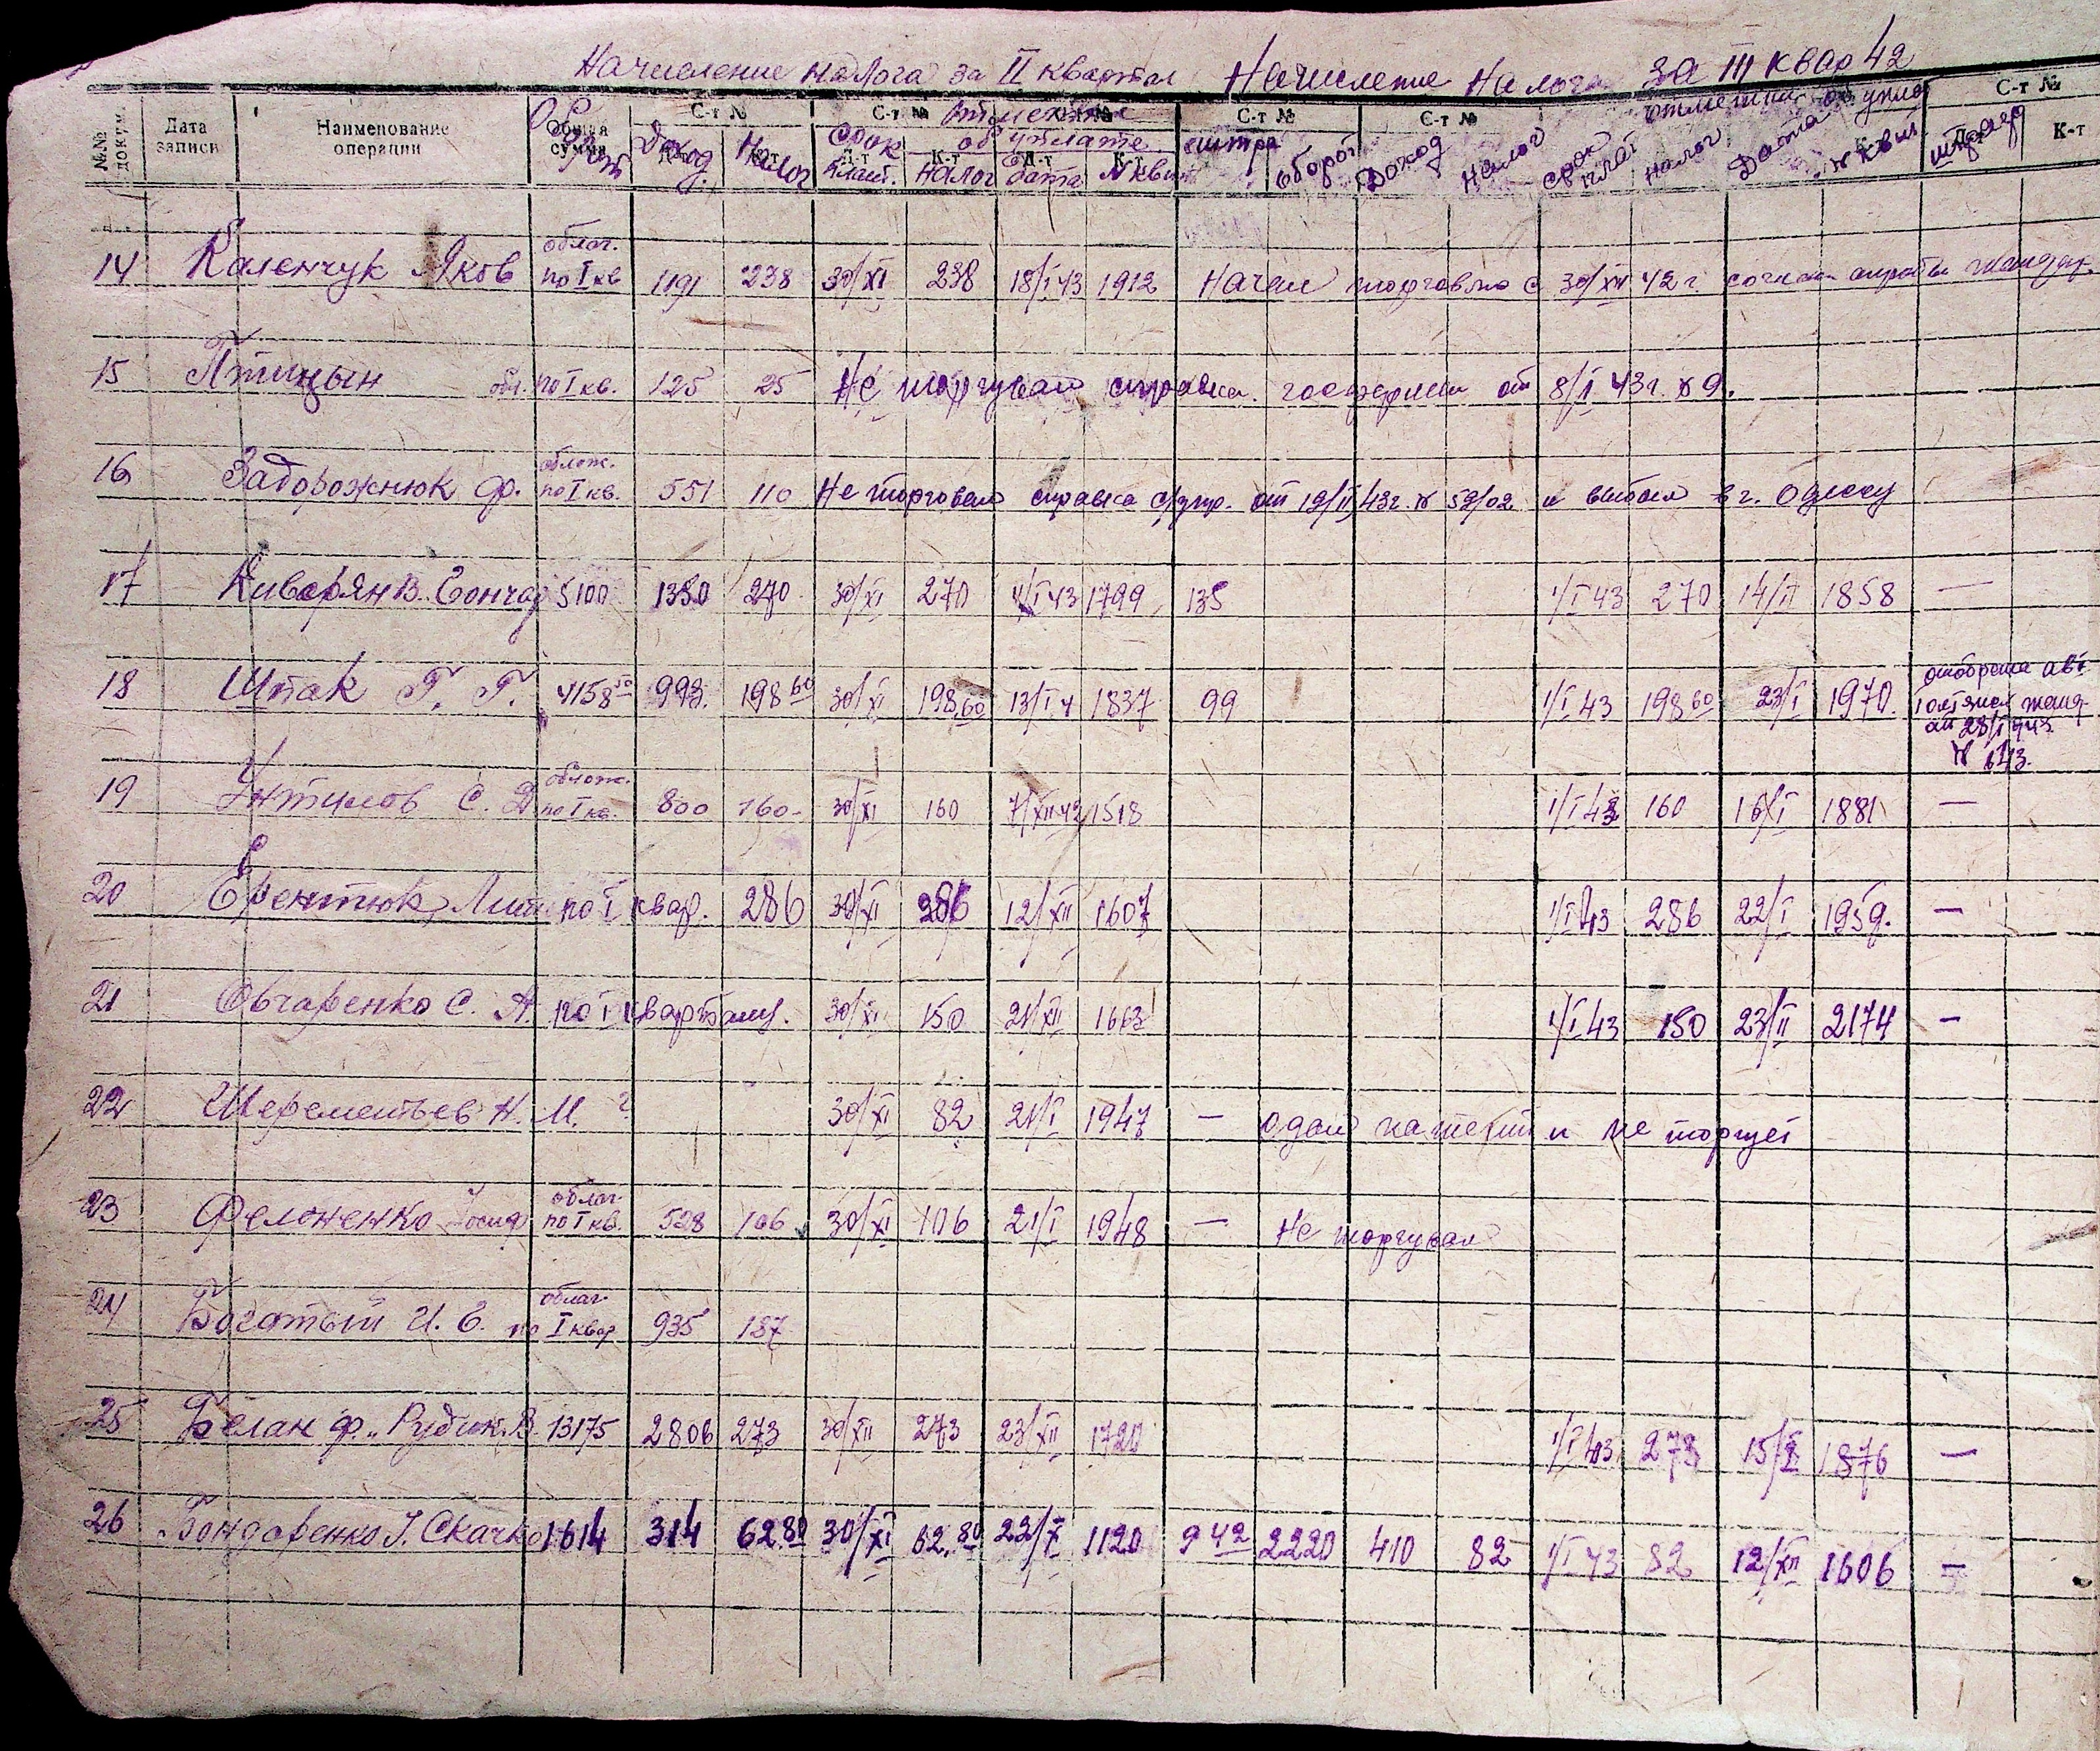 Начисление налога за II квартал Начисление Налога за III квар 42
№№ докум. Дата записи Наименование операции Общая сумма С-т № С-т № С-т № С-т № С-т № С-т №
Оборот Доход Налог Срок плат. отметка об уплате налог дата № квит штраф Оборот Доход Налог срок плат отметки об упла налог Дата № квит. штраф К-т
14 Каленчук Яков облаг. по I кв 1191 238 30/XI 238 18/I 43 1912 Начал торговлю с 30/XII 42 г. согласн справки жандар.
15 Птицын обл. по I кв. 125 25 Не торгувал справка госфермы от 8/I 43 г. № 9.
16 Задорожнюк Ф. облож. по I кв. 551 110 Не торговал справка от 19/II 43 г. № 59/02 и выбыл в г. Одессу
17 Киверян В. Гончар 5100 1350 270 30/XI 270 4/I 43 1799 135 1/I 43 270 14/II 1858 —
18 Шпак Г. Г. 4158 50 993. 198 60 30/XI 198 60 13/I 4 1837 99 1/I 43 198 60 23/I 1970.
от 28/I 943
№ 613.
19 Унтилов С. Д. облож. по I кв. 800 160- 30/XI 160 7/XII 42 1518 1/I 43 160 16/I 1881 —
20 Ерентюк по I квар. 286 30/XI 286 12/XII 1607 1/I 43 286 22/I 1959. —
21 Овчаренко С. А. по I кварталу. 30/XI 150 21/XII 1663 1/I 43 150 23/II 2174 —
22 Шереметьев Н. М. ? 30/XI 82 21/I 1947 — одал патент и не торгует
23 Фелоненко Iосиф облаг по I кв. 528 106 30/XI 106 21/I 1948 — Не торгувал
24 Богатый И. Е. облаг. по I квар 935 187
25 Белан Ф. Рудик. В. 13175 2806 273 30/XII 273 23/XII 1720 1/I 43 273 15/I 1876 —
26 Бондаренко I. Скачко 1614 314 62 80 30/XI 62.80 22/X 1120 9 42 2220 410 82 1/I 43 82 12/XII 1606 —